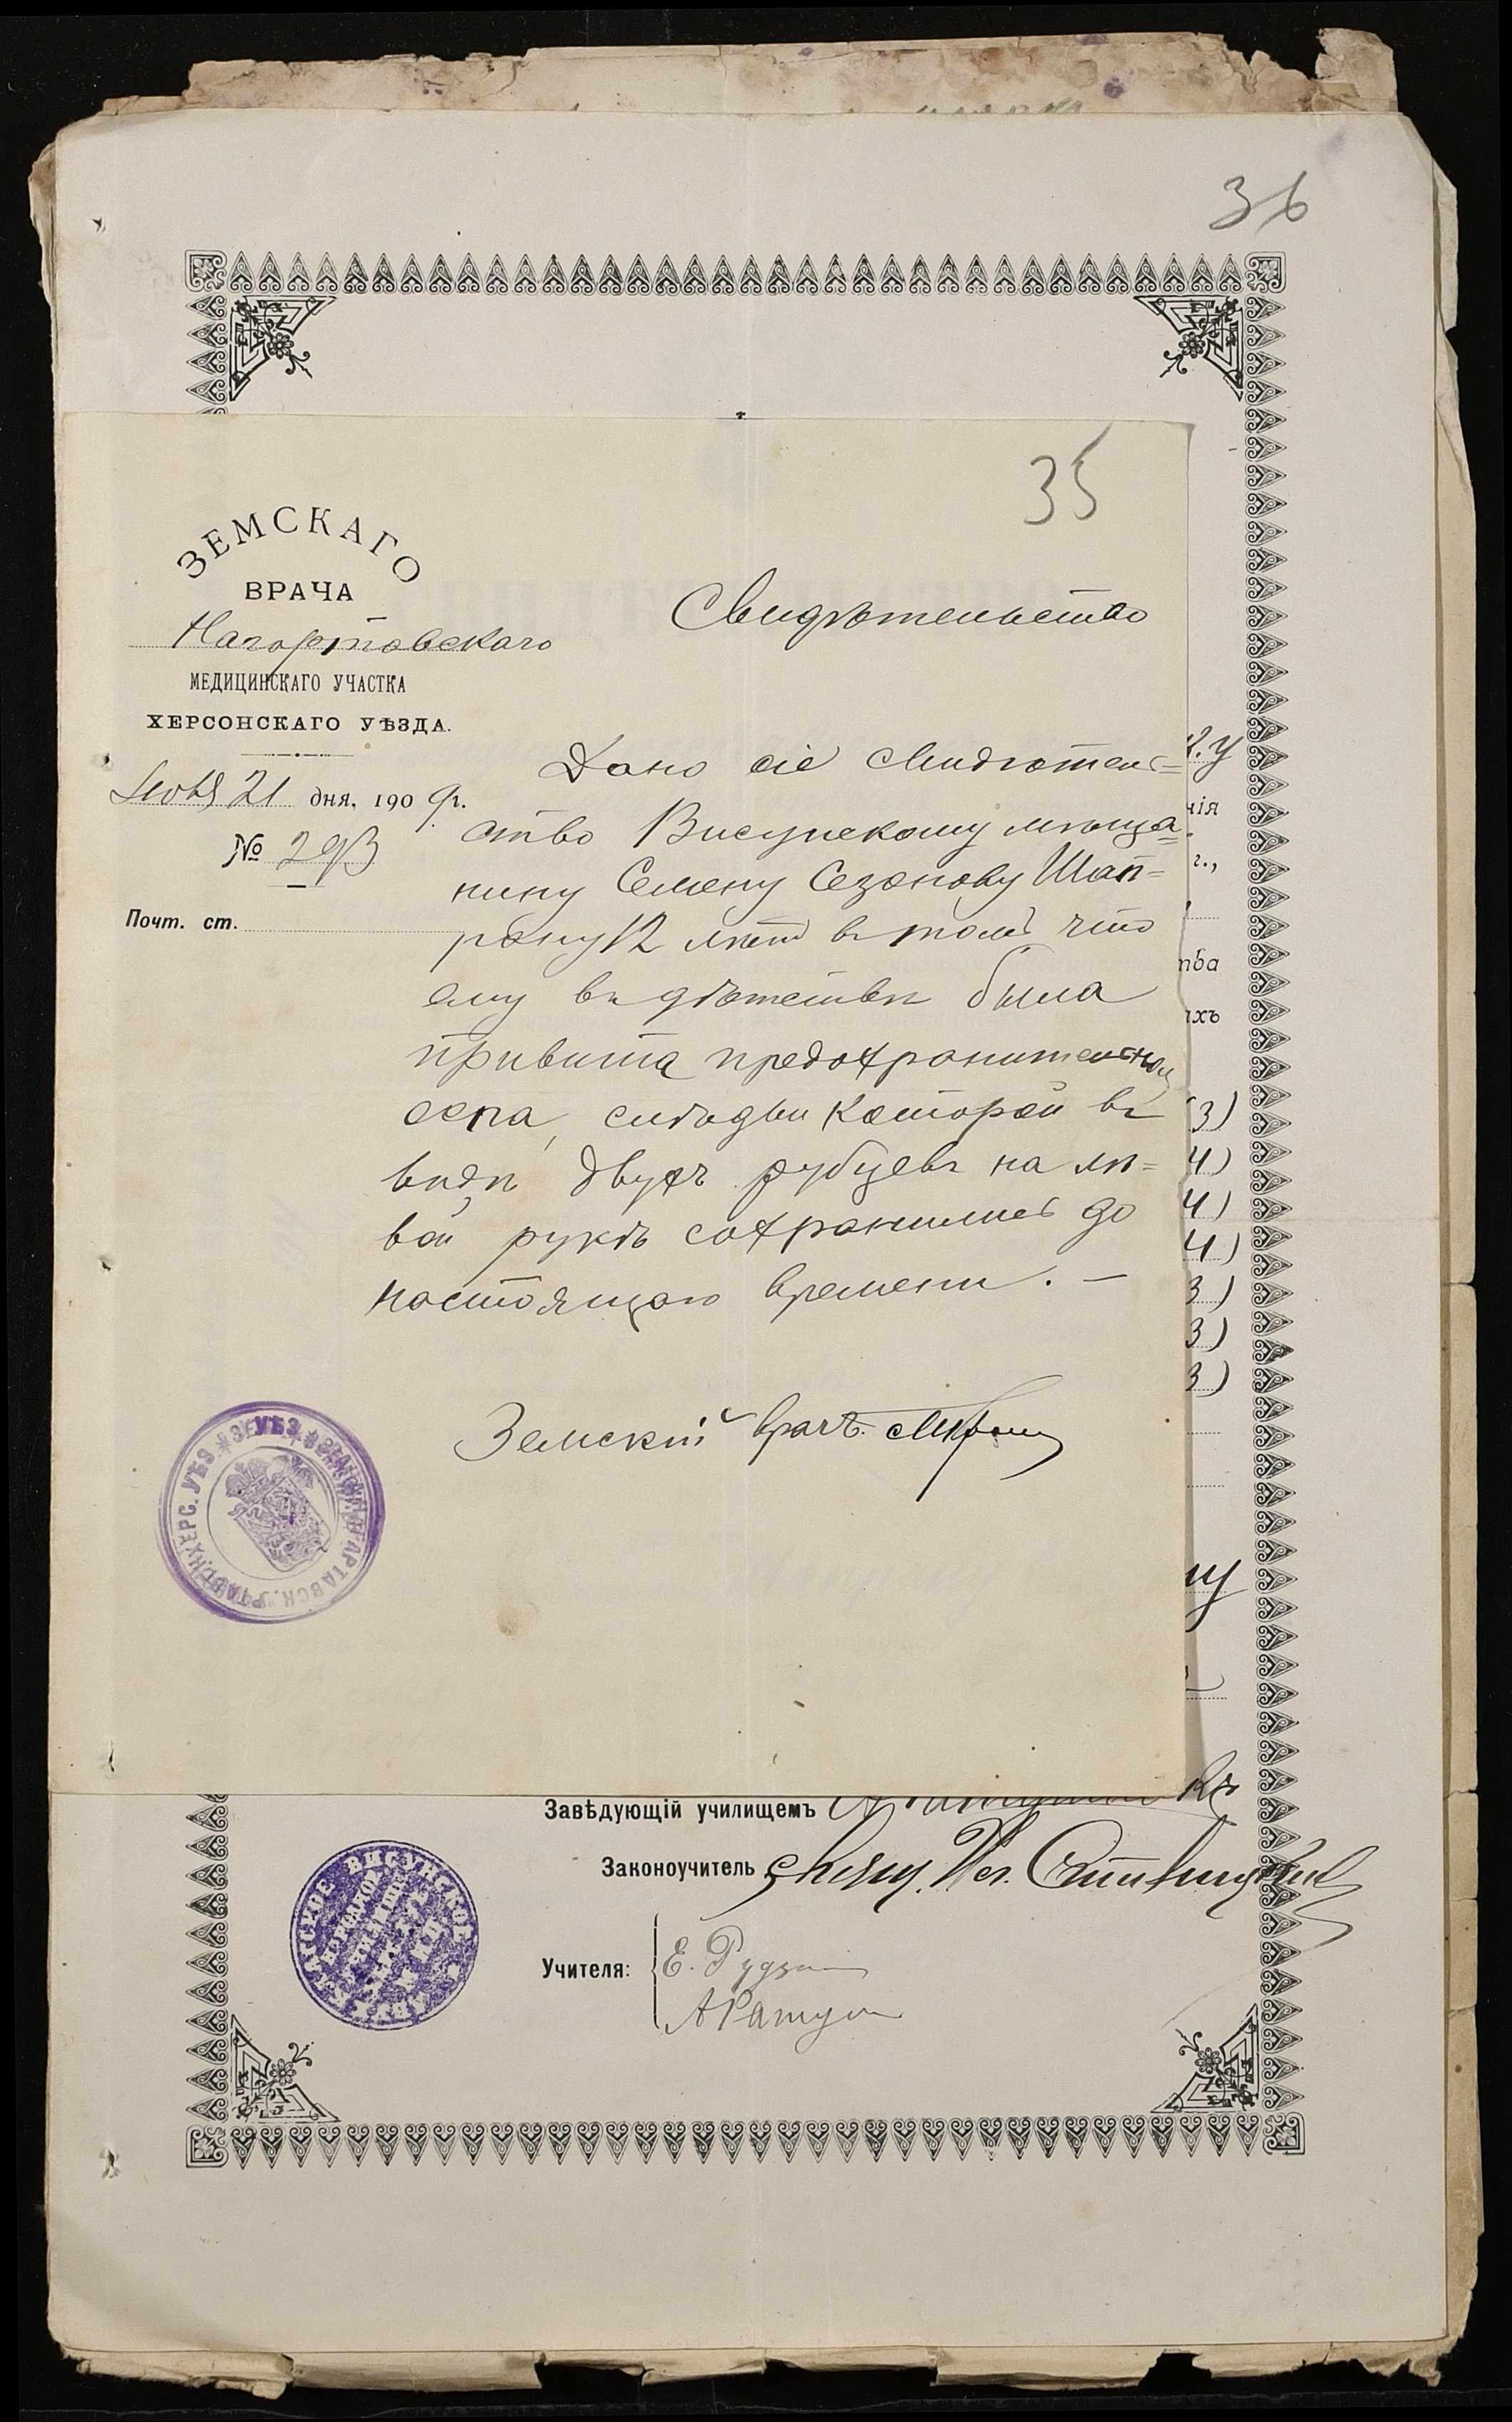 36
35
ЗЕМСКАГО
ВРАЧА
Нагортовскаго
МЕДИЦИНСКАГО УЧАСТКА
ХЕРСОНСКАГО УѢЗДА.
21 дня, 1909 г.
№ 293
Почт. ст.
Свидѣтельство
Дано сіе свидѣтель=
ство Висунскому мѣща=
нину Семену Сезонову Шап=
рану 12 лѣтъ въ томъ что
ему въ дѣтствѣ была
привита предохранительная
оспа, слѣды которой въ
видѣ двухъ рубцевъ на лѣ=
вой рукѣ сохранились до
настоящаго времени. —
Земскій врачъ
нія
г.,
тва
ихъ
3)
4)
4)
4)
3)
3)
3)
Завѣдующій училищемъ
Законоучитель Свящ.
Учителя:
Е.
А